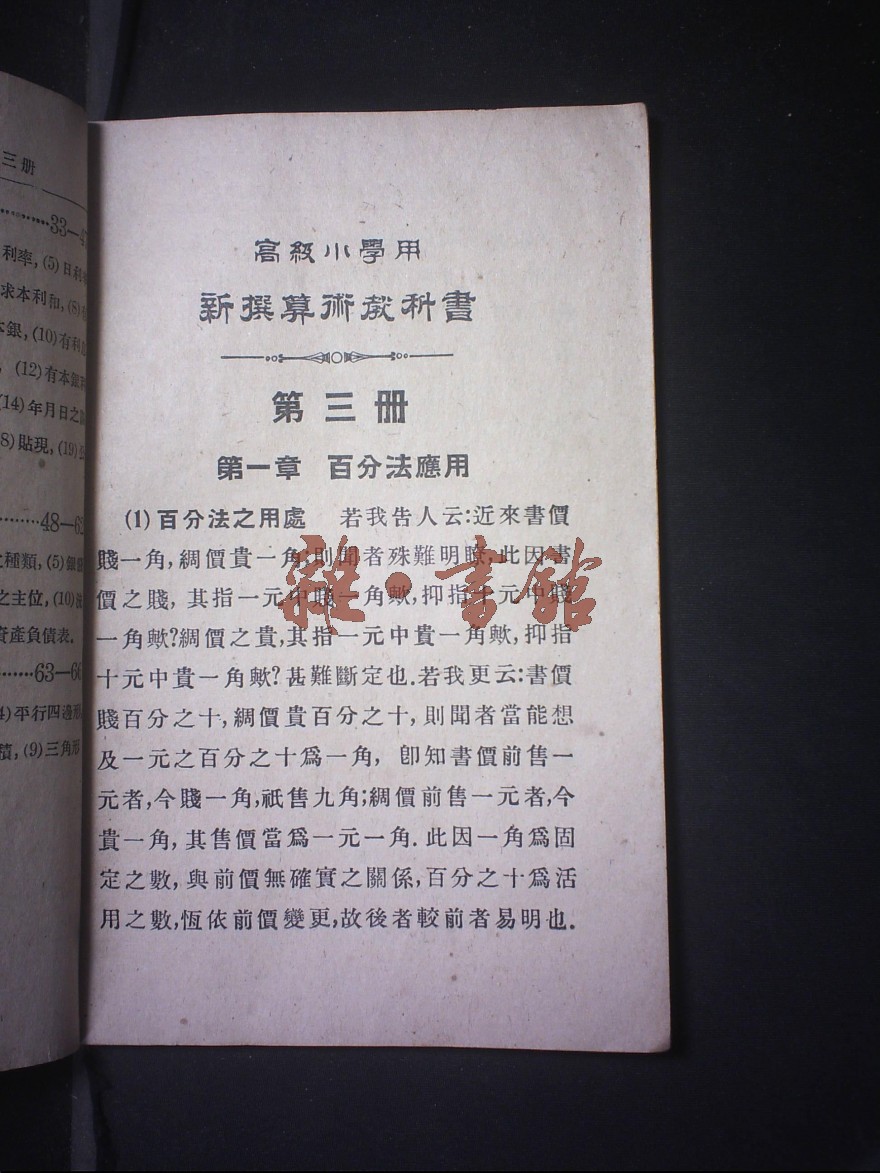 三册
33—4
利率, (5) 日利
求本利和, (8)
本銀, (10) 有利
(12) 有本銀
(14) 年月日之
8) 貼現, (19)
48—6
之種類, (5) 銀
之主位, (10)
資產負債表.
63—6
4) 平行四邊形
積, (9) 三角形
高級小學用
新撰算術教科書
第三册
第一章 百分法應用
(1) 百分法之用處 若我告人云:近來書價
賤一角, 綢價貴一角;則聞者殊難明瞭, 此因書
價之賤, 其指一元中賤一角歟, 抑指十元中賤
一角歟?綢價之貴, 其指一元中貴一角歟, 抑指
十元中貴一角歟?甚難斷定也. 若我更云:書價
賤百分之十, 綢價貴百分之十, 則聞者當能想
及一元之百分之十爲一角, 卽知書價前售一
元者, 今賤一角, 祇售九角;綢價前售一元者, 今
貴一角, 其售價當爲一元一角. 此因一角爲固
定之數, 與前價無確實之關係, 百分之十爲活
用之數, 恆依前價變更, 故後者較前者易明也.
雜·書館